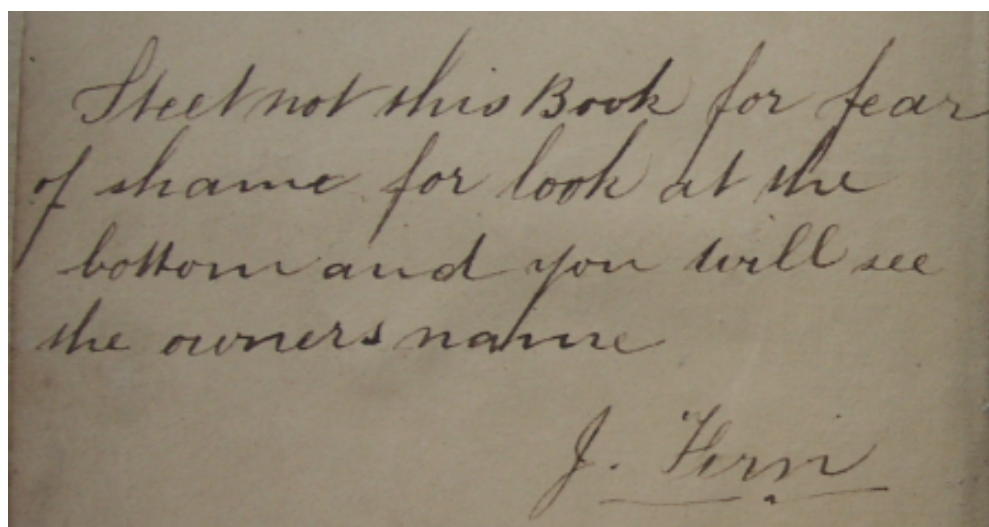 Steel not this Book for fear
of shame for look at the
bottom and you will see
the owners name
J. Fern